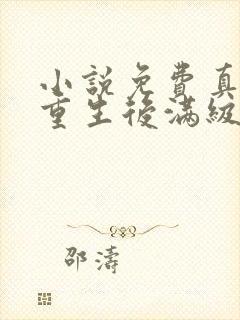 小說免費真
重生後滿級
邵濤